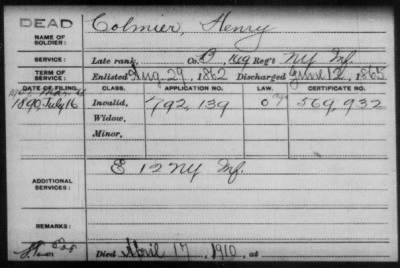 DEAD
NAME OF SOLDIER: Colmier, Henry
SERVICE: Late rank, Co. B, Reg't NY Inf.
TERM OF SERVICE: Enlisted Aug. 29, 1862 Discharged June 12, 1865
DATE OF FILING. CLASS. APPLICATION NO. LAW. CERTIFICATE NO.
1890, July 16 Invalid, 792,139 569,932
Widow,
Minor,
ADDITIONAL SERVICES: E 12 NY Inf.
REMARKS:
Died April 17, 1910, at